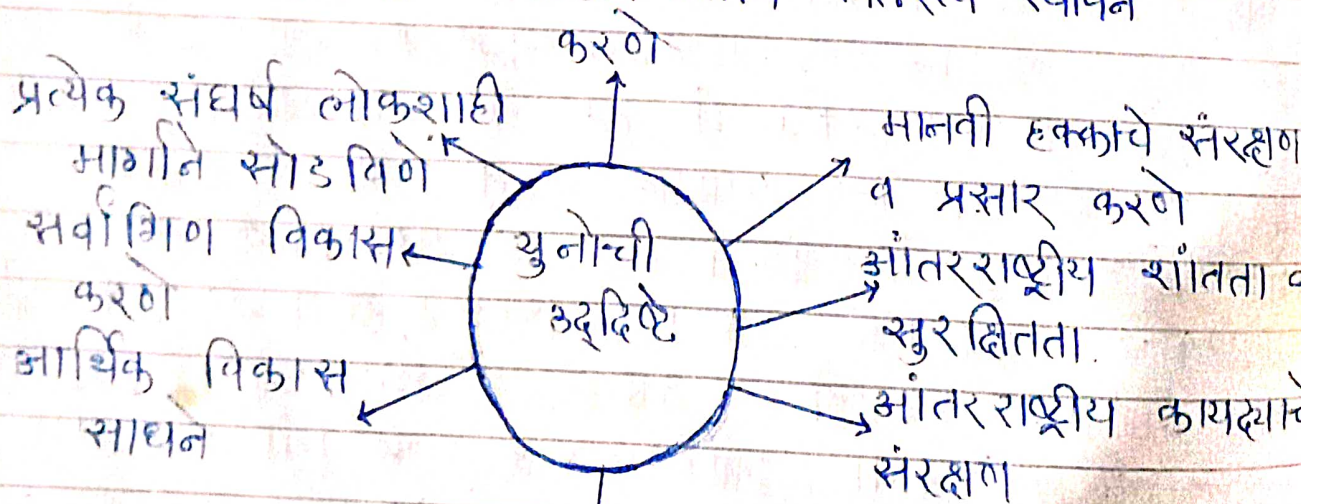 करणे
प्रत्येक संघर्ष लोकशाही
मार्गाने सोडविणे
सर्वांगिण विकास
करणे
आर्थिक विकास
साधने
युनोची
उद्दिष्टे
मानवी हक्काचे संरक्षण
व प्रसार करणे
आंतरराष्ट्रीय शांतता व
सुरक्षितता.
आंतरराष्ट्रीय
संरक्षण